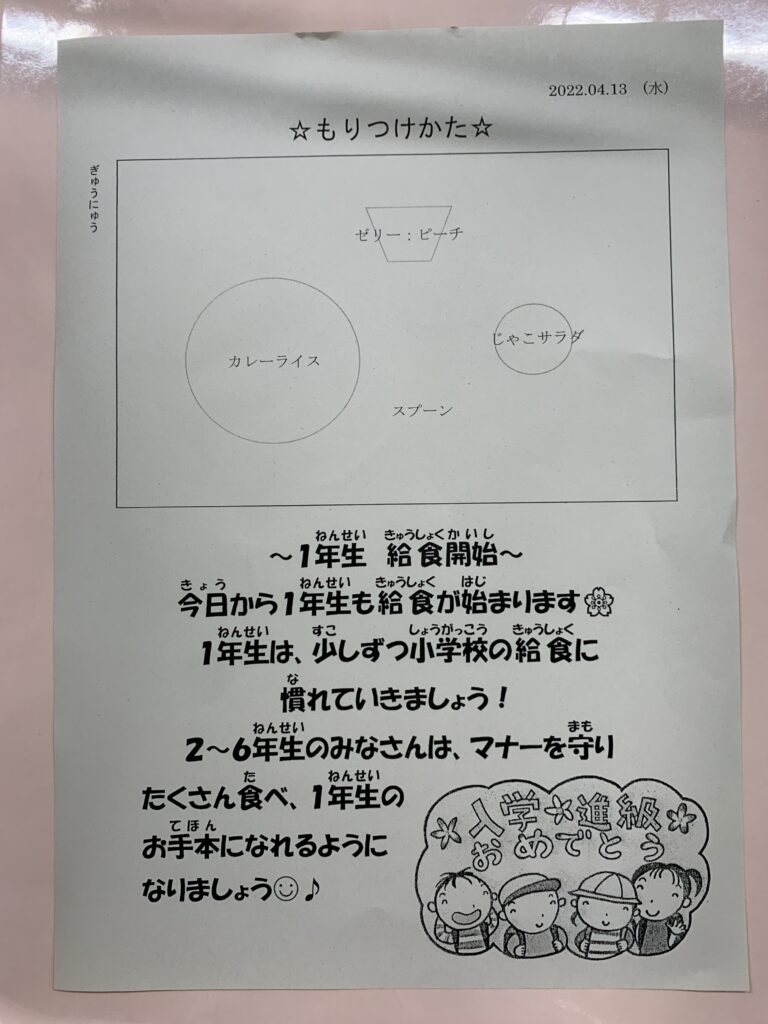 2022.04.13 （水）
☆もりつけかた☆
ぎゅうにゅう
ゼリー：ピーチ
じゃこサラダ
カレーライス
スプーン
ねんせい きゅうしょくかいし
～1年生 給食開始～
きょう ねんせい きゅうしょく はじ
今日から1年生も給食が始まります
ねんせい すこ しょうがっこう きゅうしょく
1年生は、少しずつ小学校の給食に
な
慣れていきましょう！
ねんせい まも
2～6年生のみなさんは、マナーを守り
た ねんせい
たくさん食べ、1年生の
てほん
お手本になれるように
なりましょう☺♪
入学☆進級
おめでとう